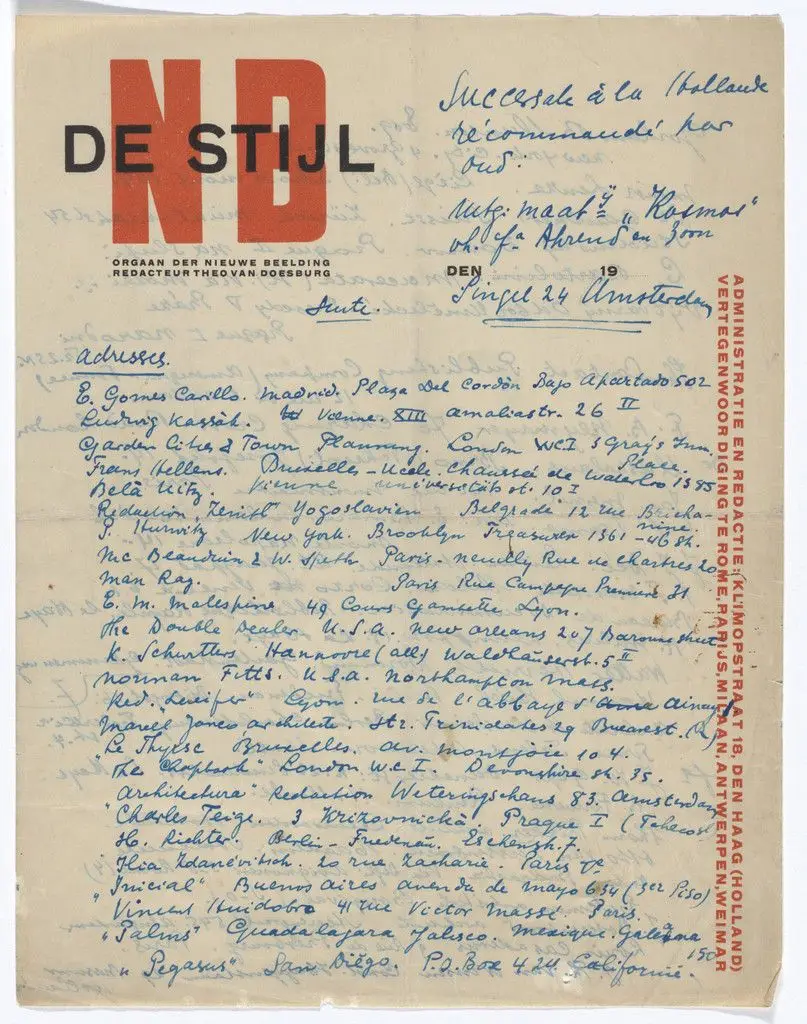 NB
DE STIJL
ORGAAN DER NIEUWE BEELDING
REDACTEUR THEO VAN DOESBURG
Succersale à la Hollande
récommandé par
Oud:
Uitg: maatÿ "Kosmos"
vh. fa Ahrend en Zoon
DEN 19
Singel 24 Amsterdam
Suite.
ADMINISTRATIE EN REDACTIE: KLIMOPSTRAAT 18, DEN HAAG (HOLLAND)
VERTEGENWOORDIGING TE ROME, PARIJS, MILAAN, ANTWERPEN, WEIMAR
adresses.
E. Gomes Carillo. Madrid. Plaza Del Cordón Bajo Apartado 502
Ludwig Kassák. Vienne. XIII Amaliastr. 26 II
Garden Cities & Town Planning. London W.C.I 3 Gray's Inn.
Place.
Frans Hellens. Bruxelles - Uccle. Chaussée de Waterloo 1385
Belà Uitz. Vienne universitätsst. 10 I
Redaction "Zenitt" Yogoslavien Belgrade 12 rue Bircha-
nine.
P. Hurwitz New York. Brooklyn Treasurer 1361 - 46 St.
Mc Beauduin & W. Speth Paris - neuilly Rue de Chartres 20
Man Ray. Paris Rue Campagne Première 31
E. M. Malespine 49 Cours Gambette Lyon.
The Double Dealer U.S.A. New Orleans 207 Baronne street
K. Schwitters Hannovre (all) Waldhäuserst. 5 II
Norman Fitts. U.S.A. Northampton Mass.
Red. "Lucifer" Lyon. rue de l'abbaye d' ainay
Marcel Janco architecte. Str. Trinidatei 29 Bucarest.
"Le Thyrse Bruxelles. av. Montjoie 104.
"The Chapbook" London W.C.I. Devonshire st. 35.
"Architectura" Redaction Weteringschans 83. Amsterdam
Charles Teige. 3 Krizovnická Prague I (Tchecosl
H. Richter. Berlin - Friedenau. Eschenst. 7.
Ilia Zdanévitsch. 20 rue Zacharie. Paris Ve
"Inicial" Buenos aires avenda de mayo 634 (3er Piso)
Vincent Huidobro 41 rue Victor Massé. Paris.
"Palms" Guadalajara Jalisco. Mexique. Galeana
150
"Pegasus" San Diégo. P.O. Box 424 Californië.